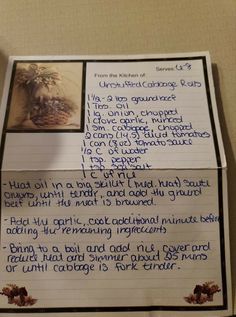 Serves 6-8
From the Kitchen of:
Unstuffed Cabbage Rolls
1½-2 lbs ground beef
1 Tbs. oil
1 lg. onion, chopped
1 clove garlic, minced
1 sm. cabbage, chopped
2 cans (14.5) diced tomatoes
1 can (8oz) tomato sauce
½ C of water
1 tsp. pepper
1 tsp. sea salt
1 C of rice
- Heat oil in a big skillet (med. heat) sauté
onions, until tender, and add the ground
beef until the meat is browned.
- Add the garlic, cook additional minute before
adding the remaining ingredients
- Bring to a boil and add rice, cover and
reduce heat and simmer about 25 mins
or until cabbage is fork tender.